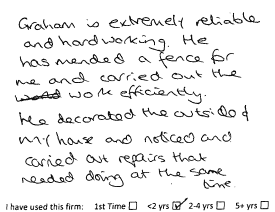 Graham is extremely reliable
and hardworking. He
has mended a fence for
me and carried out the
work efficiently.
He decorated the outside of
my house and noticed and
carried out repairs that
needed doing at the same
time.
I have used this firm: 1st Time ☐ <2 yrs ☑ 2-4 yrs ☐ 5+ yrs ☐